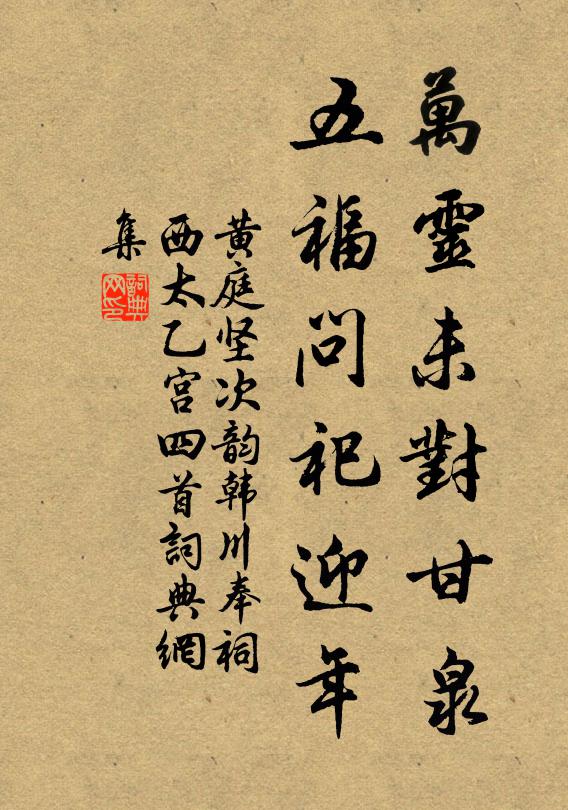 萬靈未對甘泉
五福問祀迎年
黄庭坚次韵韩川奉祠
西太乙宮四首詞典網
集
詞典網印